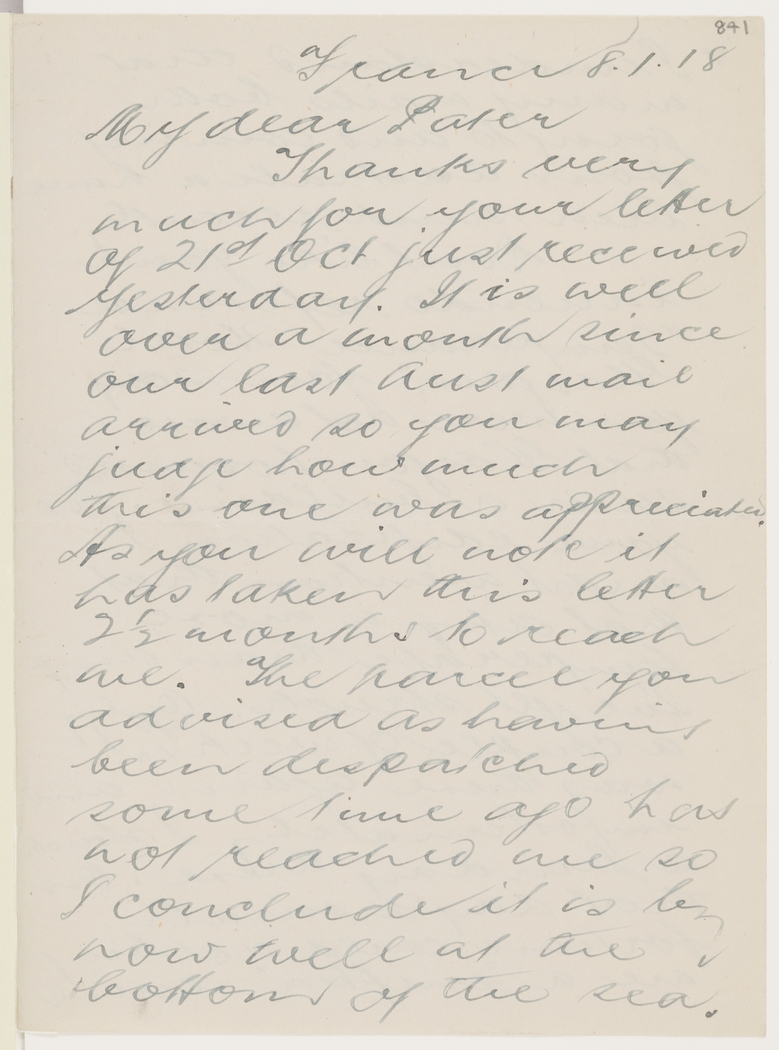 841
France 8.1.18
My dear Pater
Thanks very
much for your letter
of 21st Oct just received
yesterday. It is well
over a month since
our last Aust mail
arrived so you may
judge how much
this one was appreciated.
As you will note it
has taken this letter
2½ months to reach
me. The parcel you
advised as having
been despatched
some time ago has
not reached me so
I conclude it is by
now well at the
bottom of the sea.